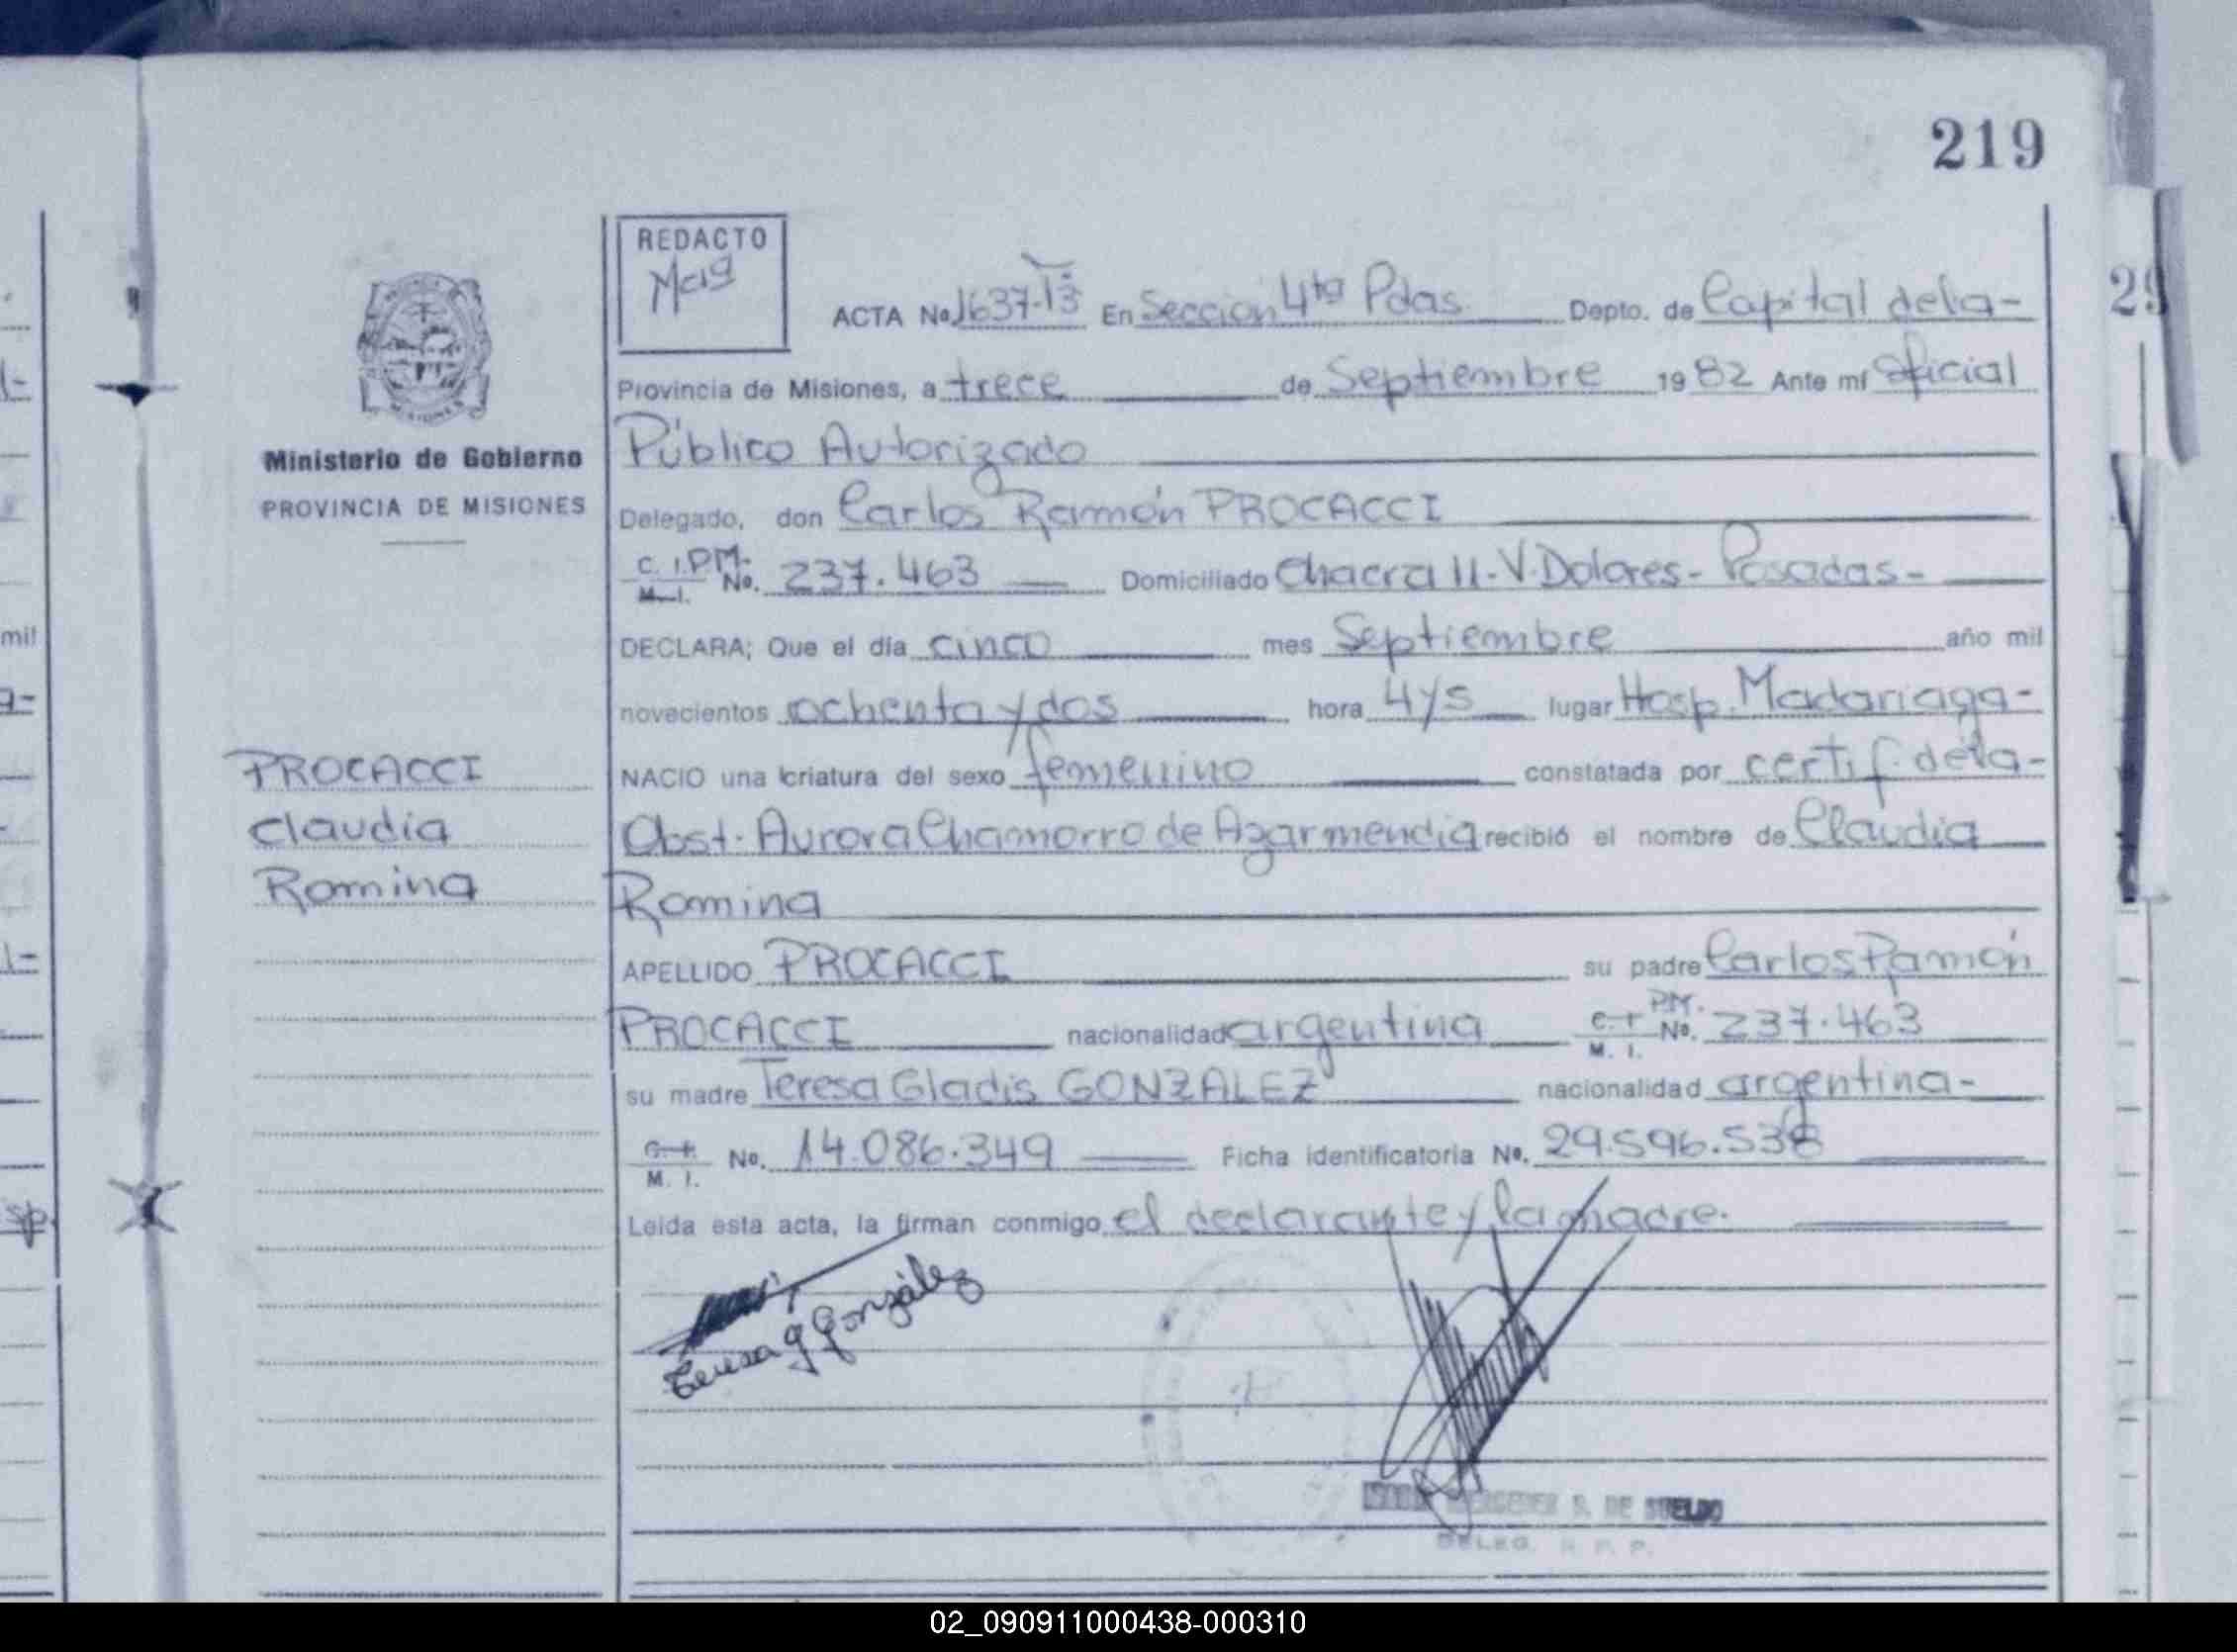 219
REDACTO
ACTA No. 1637-T3 En Sección 4ta Pdas. Depto. de Capital dela-
Provincia de Misiones, a trece de Septiembre 1982 Ante mí Oficial
Público Autorizado
Ministerio de Gobierno
PROVINCIA DE MISIONES
Delegado, don Carlos Ramón PROCACCI
C. I. PM. M. I. No. 237.463 Domiciliado Chacra 11-V.Dolores-Posadas-
DECLARA; Que el día cinco mes Septiembre año mil
novecientos ochenta y dos hora 4y5 lugar Hosp. Madariaga-
PROCACCI
Claudia
Romina
NACIO una criatura del sexo femenino constatada por certif. dela-
Obst. Aurora Chamorro de Azarmendia recibió el nombre de Claudia
Romina
APELLIDO PROCACCI su padre Carlos Ramón
PROCACCI nacionalidad argentina C. I. PM. M. I. No. 237.463
su madre Teresa Gladis GONZALEZ nacionalidad argentina-
C. I. M. I. No. 14.086.349 Ficha identificatoria No. 29.596.538
Leída esta acta, la firman conmigo el declarante y la madre.
Teresa G González
DE SUELDO
DELEG. R. P. P.
02_090911000438-000310